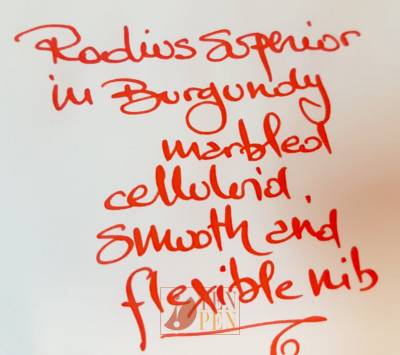 Radius Superior
in Burgundy
marbled
celluloid.
smooth and
flexible nib
PEN
PEN